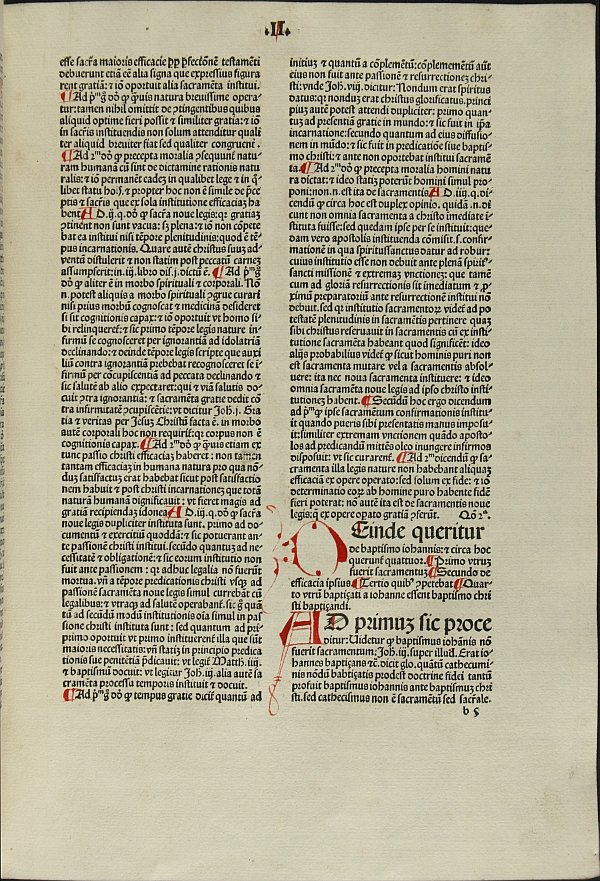 .II.
esse sacr̃a maioris efficacie ꝓp̱ ꝑfectionē testamēti
debuerunt etiā eē alia signa que expressius figura
rent gratiā: ⁊ iō oportuit alia sacramēta institui.
Ad p̄mū dō ꝙ ꝙuis natura breuissime opera-
tur: tamen nihil omittit de ꝯtingentibus quibus
aliquid optime fieri possit ⁊ similiter gratia: ⁊ iō
in sacris instituendis non solum attenditur quali
ter aliquid breuiter fiat sed qualiter congruent̄.
Ad 2ᵐ dō ꝙ precepta moralia ꝯsequunt̄ natu
ram humanā cū sint de dictamine rationis natu
ralis: ⁊ iō permanēt eadeȝ in qualibet lege ⁊ in q̄
libet statu hoī́s. ⁊ propter hoc non ē simile de p̄cce
ptis ⁊ sacris que ex sola institutione efficaciaȝ ha
bent. AD .iij.q.dō ꝙ sacr̃a noue legis: qꝛ gratiaȝ
ꝯtinent non sunt vacua: sȝ plena: ⁊ iō non cōpete
bat ea institui nisi tēpore plenitudinis: quod ē tē-
pus incarnationis. Quare autē christus suuȝ ad-
ventū distulerit ⁊ non statim post peccatū carneȝ
assumpserit: in .iij. libro dis̄.j. dictū ē. Ad p̄mū
dō ꝙ aliter ē in morbo spirituali ⁊ corporali. Nō
n̄ potest aliquis a morbo spirituali ꝯgrue curari
nisi prius morbū cognoscat ⁊ medicinā desideret
si sit cognitionis capax: ⁊ iō oportuit vt homo si-
bi relinqueret̄: ⁊ sic primo tēpore legis nature in-
firmū se cognosceret per ignorantiā ad idolatriā
declinando: ⁊ deinde tēpore legis scripte que auxi
liū contra ignorantiā prebebat recognosceret se ī-
firmū per cōcupiscentiā ad peccata declinando ⁊
sic salutē ab alio expectaret: qui ⁊ viā salutis do-
cuit ꝯtra ignorantiā: ⁊ sacramēta gratie dedit cō
tra infirmitatē ꝯcupiscētie: vt dicitur Joh.j. Gra
tia ⁊ veritas per Jesuȝ Christū facta ē. in morbo
autē corporali hoc non requirit̄: qꝛ corpus non ē
cognitionis capax. Ad 2ᵐ dō ꝙ ꝙuis etiam ex
tunc passio christi efficaciaȝ haberet: non tamen
tantam efficaciaȝ in humana natura pro qua nō-
duȝ satisfactuȝ erat habebat sicut post satisfactio
nem habuit ⁊ post christi incarnationeȝ que totā
naturā humanā dignificauit: vt fieret magis ad
gratiā recipiendaȝ idonea. AD .iij.q.dō ꝙ sacr̃a
noue legis dupliciter instituta sunt. primo ad do-
cumentū ⁊ exercitiū quoddā: ⁊ sic potuerunt an-
te passionē christi institui. secūdo quantuȝ ad ne-
cessitatē ⁊ obligationē: ⁊ sic eorum institutio non
fuit ante passionem: qꝛ adhuc legalia nō fuerūt
mortua. vn̄ a tēpore predicationis christi vsqȝ ad
passionē sacramēta noue legis simul currebāt cū
legalibus: ⁊ vtraqȝ ad salutē operabant̄. sic ḡ quā
tū ad secūdū modū institutionis oīa simul in pas
sione christi instituta sunt: sed quantum ad pri-
primo oportuit vt primo instituerent̄ illa que sūt
maioris necessitatis: vn̄ statīȝ in principio predica
tionis sue penitētia p̄dicauit: vt legit̄ Matth.iiij.
⁊ baptismū docuit: vt legitur Joh.iij. alia autē sa
cramēta processu temporis instituit ⁊ docuit.
Ad p̄mū ḡ dō ꝙ tempus gratie dicit̄ quantū ad
initiuȝ ⁊ quantū a cōplemētū: cōplememētū aūt
eius non fuit ante passionē ⁊ resurrectioneȝ chri-
sti: vnde Joh.viij. dicitur: Nondum erat spiritus
datus: qꝛ nonduȝ erat christus glorificatus. princi
piuȝ autē potest attendi dupliciter: primo quan-
tuȝ ad presentiā gratie in mundo: ⁊ sic fuit in ip̄a
incarnatione: secundo quantum ad eius diffusio-
nem in mūdo: ⁊ sic fuit in predicatiōe siue baptis-
mo christi: ⁊ ante non oportebat institui sacramē
ta. Ad 2ᵐ dō ꝙ precepta moralia homini natu
ra dictat: ⁊ ideo statiȝ poterūt homini simul pro-
poni: non.n. est ita de sacramentis. AD .iiij.q. di-
cendū ꝙ circa hoc est duplex opinio. quidā .n. di
cunt non omnia sacramenta a christo imediate ī-
stituta fuisse: sed quedam ipse per se instituit: que-
dam vero apostolis instituenda cōmisit. s. confir-
mationē in qua spiritussanctus datur ad robur:
cuius institutio esse non debuit ante plenā spirit̄-
sancti missionē ⁊ extremaȝ vnctioneȝ: que tamē
cum ad gloriā resurrectionis sit imediatum ⁊ ꝓ-
ximū preparatoriū ante resurrectionē institui nō
debuit. sed qꝛ institutio sacramentoꝝ videt̄ ad po
testatē plenitudinis in sacramētis pertinere quaȝ
sibi christus reseruauit in sacramentis cū ex insti-
tutione sacramēta habeant quod significēt: ideo
alijs probabilius videt̄ ꝙ sicut hominis puri non
est sacramenta mutare vel a sacramentis absol-
uere: ita nec noua sacramenta instituere: ⁊ ideo
omnia sacramēta noue legis ad ipso christo insti-
tutioneȝ habent. Secūdū hoc ergo dicendum
ad p̄mū ꝙ ipse sacramētum confirmationis institu-
it quando pueris sibi presentatis manus imposu-
it: similiter extremam vnctionem quādo aposto-
los ad predicandū mittēs oleo inungere infirmos
disposuit: vt sic curarent̄. Ad 2ᵐ dicendū ꝙ sa-
cramenta illa legis nature non habebant aliquaȝ
efficaciā ex opere operato: sed solum ex fide: ⁊ iō
determinatio eorȝ ab homine puro habente fidē
fieri poterat: nō autē ita est de sacramentis noue
legis: q̄ ex opere opato gratiā ꝯferūt. Qō 2ᵃ.
DEinde queritur
de baptismo iohannis: ⁊ circa hoc
querunt̄ quattuor. Primo vtruȝ
fuerit sacramentuȝ. Secundo de
efficacia ipsius. Tertio quibꝰ ꝯpetebat. Quar-
to vtrū baptiȝati a iohanne essent baptismo chri
sti baptiȝandi.
AD primuȝ sic proce
ditur: Uidetur ꝙ baptismus iohānis nō
fuerit sacramentum: Joh.iij. super illud. Erat io-
hannes baptiȝans ⁊c̄. dicit glo. quātū cathecumi-
nis nōdū babtiȝatis prodest doctrine fidei tantū
profuit baptismus iohannis ante baptismuȝ chri
sti. sed cathecismus non ē sacramētū sed sacr̄ale.
b 5